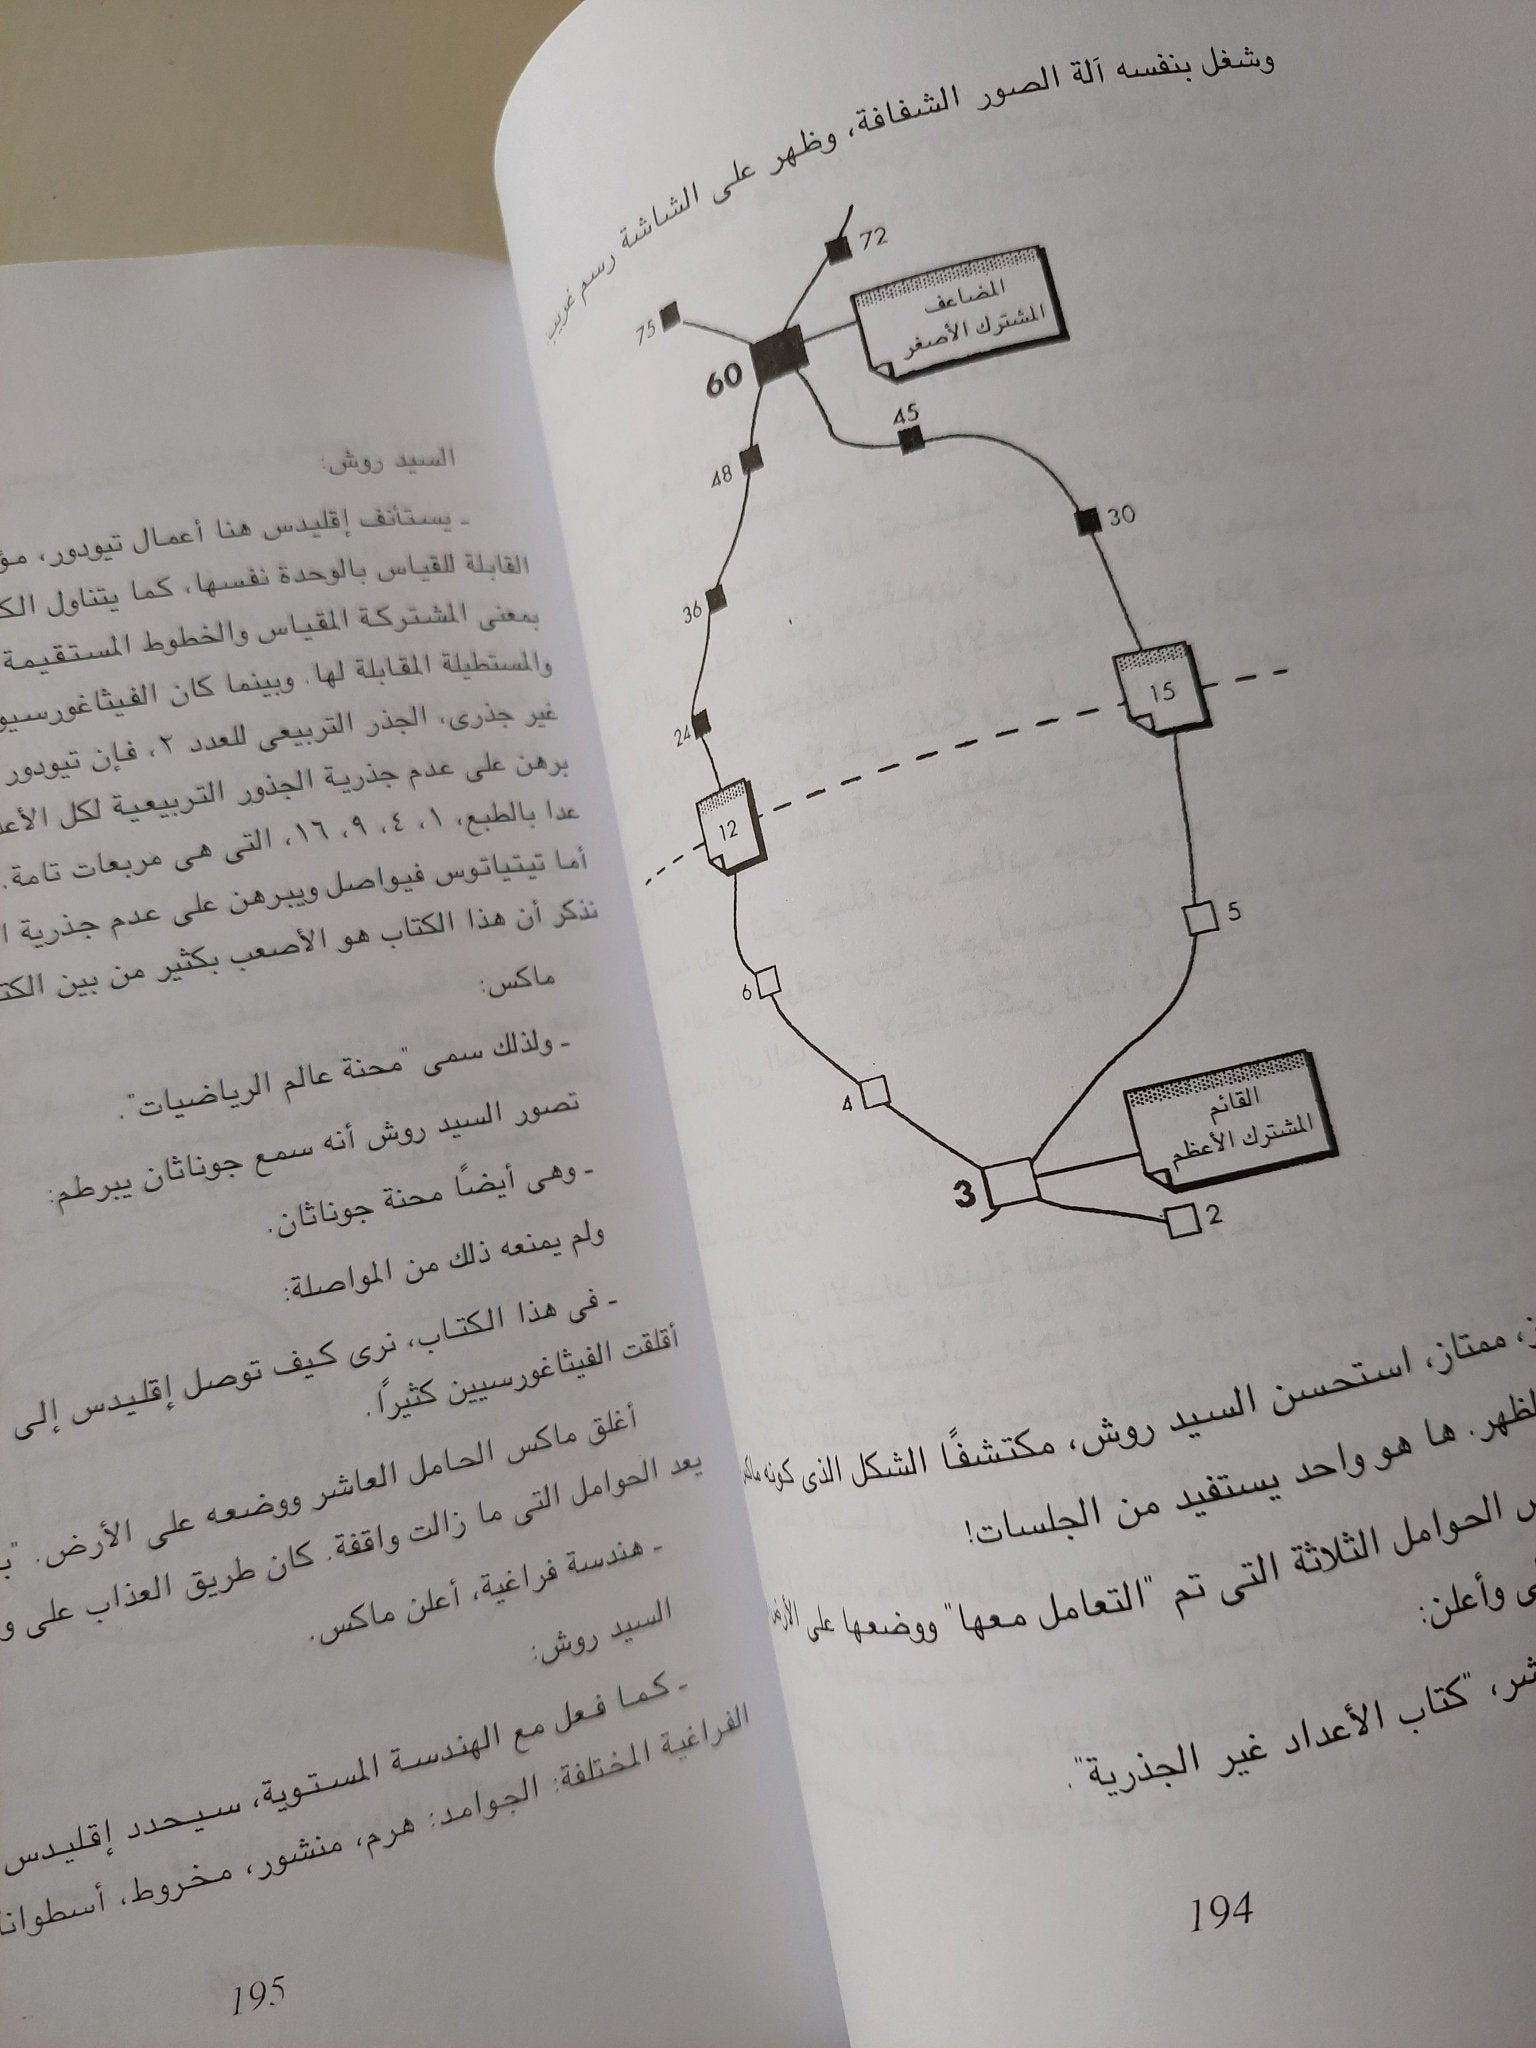 وشغل بنفسه آلة الصور الشفافة، وظهر على الشاشة رسم غريب
72
75
المضاعف
المشترك الأصغر
60
45
48
30
36
24
15
12
5
6
4
القائم
المشترك الأعظم
3
2
ممتاز، استحسن السيد روش، مكتشفًا الشكل الذى كونه ماكس
ها هو واحد يستفيد من الجلسات!
الحوامل الثلاثة التى تم "التعامل معها" ووضعها على الأرض
وأعلن:
"كتاب الأعداد غير الجذرية".
194
السيد روش:
ـ يستأنف إقليدس هنا أعمال تيودور،
القابلة للقياس بالوحدة نفسها، كما يتناول
بمعنى المشتركة المقياس والخطوط المستقيمة
والمستطيلة المقابلة لها. وبينما كان
غير جذرى، الجذر التربيعى للعدد ٢، فإن تيودور
برهن على عدم جذرية الجذور التربيعية لكل
عدا بالطبع، ١، ٤، ٩، ١٦، التى هى مربعات تامة.
أما تيتياتوس فيواصل ويبرهن على عدم جذرية
نذكر أن هذا الكتاب هو الأصعب بكثير من بين
ماكس:
ـ ولذلك سمى "محنة عالم الرياضيات".
تصور السيد روش أنه سمع جوناثان يبرطم:
ـ وهى أيضًا محنة جوناثان.
ولم يمنعه ذلك من المواصلة:
ـ فى هذا الكتاب، نرى كيف توصل إقليدس إلى
أقلقت الفيثاغورسيين كثيرًا.
أغلق ماكس الحامل العاشر ووضعه على الأرض.
يعد الحوامل التى ما زالت واقفة. كان طريق العذاب على
ـ هندسة فراغية، أعلن ماكس.
السيد روش:
ـ كما فعل مع الهندسة المستوية، سيحدد إقليدس
الفراغية المختلفة: الجوامد: هرم، منشور، مخروط،
195